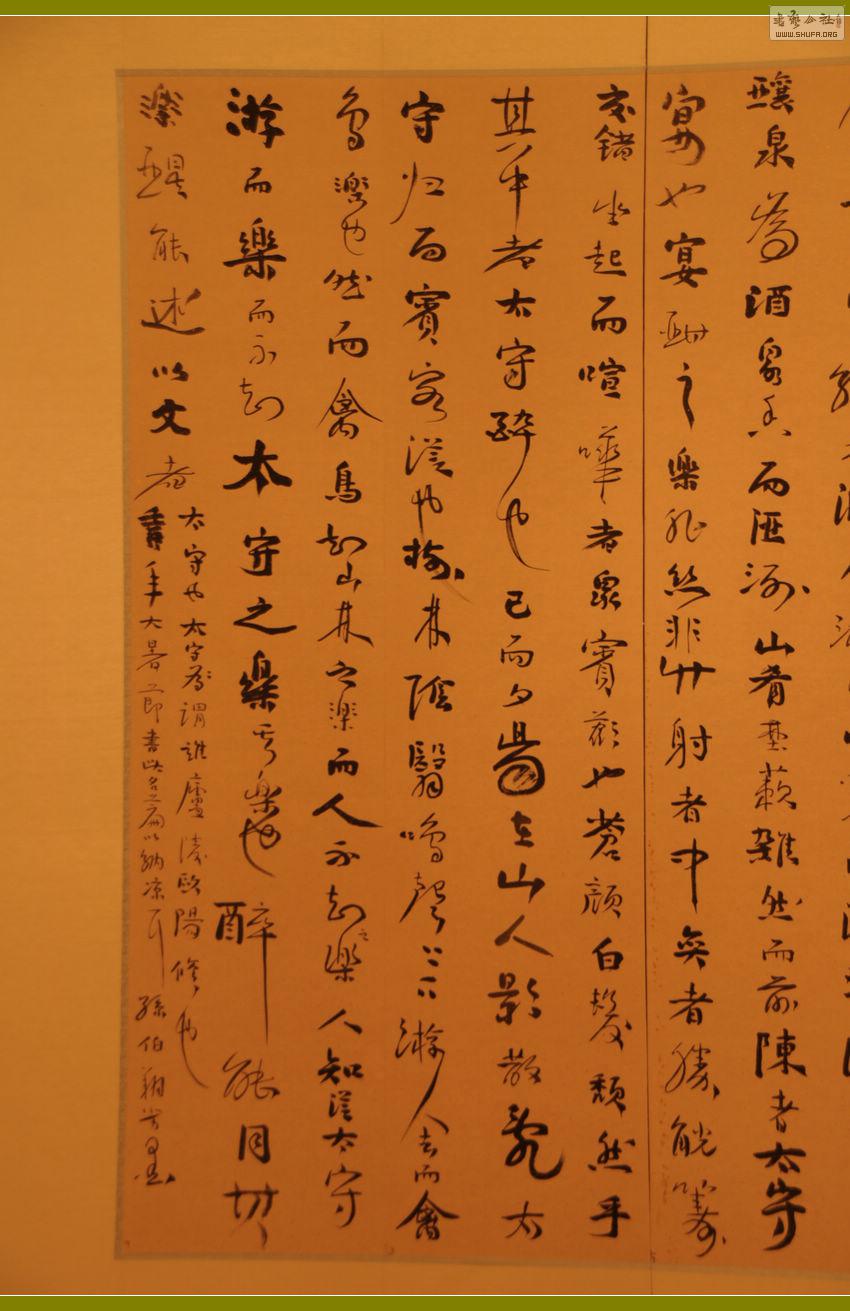 書藝公社
WWW.SHUFA.ORG
釀泉為酒泉香而酒洌山肴野蔌雜然而前陳者太守
宴也宴酣之樂非絲非竹射者中弈者勝觥籌
交錯坐起而喧嘩者眾賓歡也蒼顏白髮頹然乎
其中者太守醉也已而夕陽在山人影散亂太
守归而賓客從也樹林陰翳鳴聲上下游人去而禽
鳥樂也然而禽鳥知山林之樂而人不知之樂人知從太守
游而樂而不知太守之樂其樂也醉能同其
樂醒能述以文者
太守也太守為謂誰廬陵歐陽修也
年大暑節書此名篇以納凉耳孫伯翔